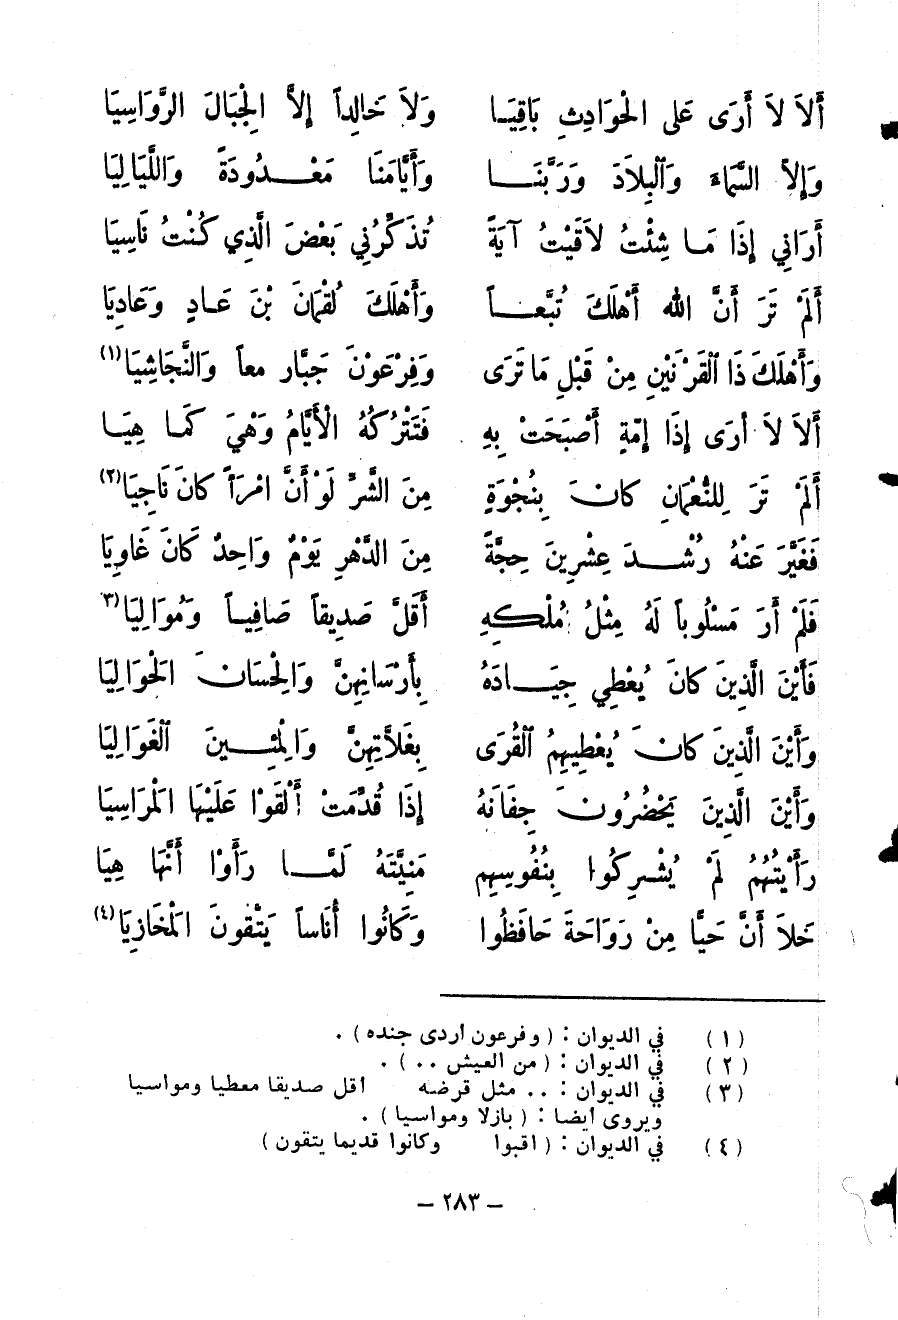 أَلاَ لاَ أَرَى عَلى الْحَوَادِثِ بَاقِيَـا وَلاَ خَالِداً إِلاَّ الْجِبَالَ الرَّوَاسِيَا
وَإِلاَّ السَّمَاءَ وَٱلْبِلاَدَ وَرَبَّنَـــا وَأَيَّامَنَا مَعْـــدُودَةً وَاللَّيَالِيَا
أَرَانِي إِذَا مَـا شِئْتُ لاَقَيْتُ آيَةً تُذَكِّرُنِي بَعْضَ الَّذِي كُنْتُ نَاسِيَا
أَلَمْ تَرَ أَنَّ الله أَهْلَكَ تُبَّعـــاً وَأَهْلَكَ لُقْمَانَ بْنَ عَـادٍ وَعَادِيَا
وَأَهْلَكَ ذَا ٱلْقَرْنَيْنِ مِنْ قَبْلِ مَا تَرَى وَفِرْعَوْنَ جَبَّار معاً وَالنَّجَاشِيَا(١)
أَلاَ لاَ أَرَى إِذَا إِمّةٍ أَصْبَحَتْ بِهِ فَتَتْرُكُهُ الْأَيَّامُ وَهْيَ كَمَـا هِيَـا
أَلَمْ تَرَ لِلنُّعْمَانِ كانَ بِنُجْوَةٍ مِنَ الشَّرِّ لَوْ أَنَّ امْرَأً كانَ نَاجِيَا(٢)
فَغَيَّرَ عَنْهُ رُشْــدَ عِشْرِينَ حِجَّةً مِنَ الدَّهْرِ يَوْمٌ وَاحِدٌ كَانَ غَاوِيَا
فَلَمْ أَرَ مَسْلُوباً لَهُ مِثْلُ مُلْكِهِ أَقَلَّ صَدِيقاً صَافِيـاً وَمُوَالِيَا(٣)
فَأَيْنَ الَّذِينَ كانَ يُعْطِي جِيَـــادَهُ بِأَرْسَانِهِنَّ وَالْحِسَانَ الْحَوَالِيَا
وَأَيْنَ الَّذِينَ كانَ يُعْطِيهِمُ ٱلْقُرَى بِغَلاَّتِهِنَّ وَالْمِئِــينَ ٱلْغَوَالِيَا
وَأَيْنَ الَّذِينَ يَحْضُرُونَ جِفَانَهُ إِذَا قُدِّمَتْ أَلْقَوْا عَلَيْهَا الْمَرَاسِيَا
رَأَيْتُهُمُ لَمْ يُشْرِكُوا بِنُفُوسِهِم مَنِيَّتَهُ لَمَّــا رَأَوْا أَنَّهَا هِيَا
خَلاَ أَنَّ حَيًّا مِنْ رَوَاحَةَ حَافَظُوا وَكَانُوا أُنَاساً يَتَّقونَ الْمَخَازِيَا(٤)
(١) في الديوان : ( وفرعون أردى جنده ) .
(٢) في الديوان : ( من العيش .. ) .
(٣) في الديوان : .. مثل قرضه اقل صديقا معطيا ومواسيا
ويروى أيضا : ( بازلا ومواسيا ) .
(٤) في الديوان : ( اقبوا وكانوا قديما يتقون )
– ٢٨٣ –